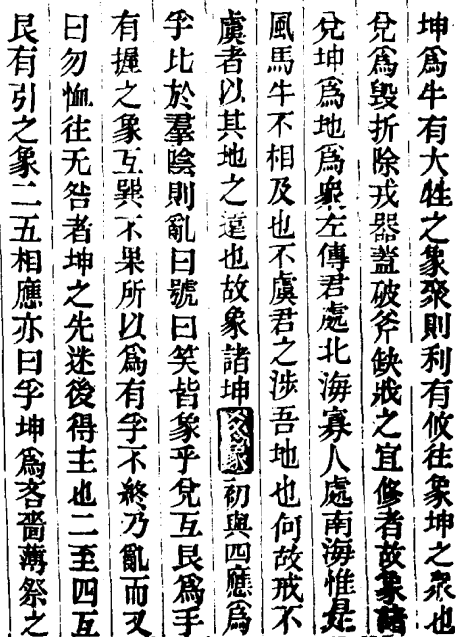 坤爲牛有大牲之象聚則利有攸往象坤之衆也
兌爲毀折除戎器蓋破斧缺戕之宜修者故象諸
兌坤爲地爲衆左傳君處北海寡人處南海惟是
風馬牛不相及也不虞君之涉吾地也何故戒不
虞者以其地之遠也故象諸坤爻象初與四應爲
孚比於羣陰則亂曰號曰笑皆象乎兌互艮爲手
有握之象互巽不果所以爲有孚不終乃亂而又
曰勿恤往无咎者坤之先迷後得主也二至四互
艮有引之象二五相應亦曰孚坤爲吝嗇薄祭之